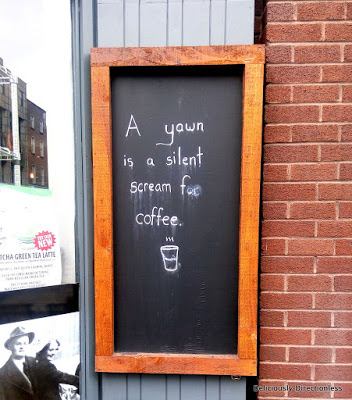 A yawn
is a silent
scream for
coffee.
TCHA
GREEN TEA LATTE
NEW!
Deliciously Directionless